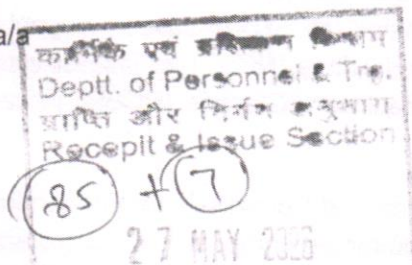 a/a
कार्मिक एवं प्रशिक्षण विभाग
Deptt. of Personnel & Trg.
प्राप्ति और निर्गम अनुभाग
Recepit & Issue Section
85 + 7
27 MAY